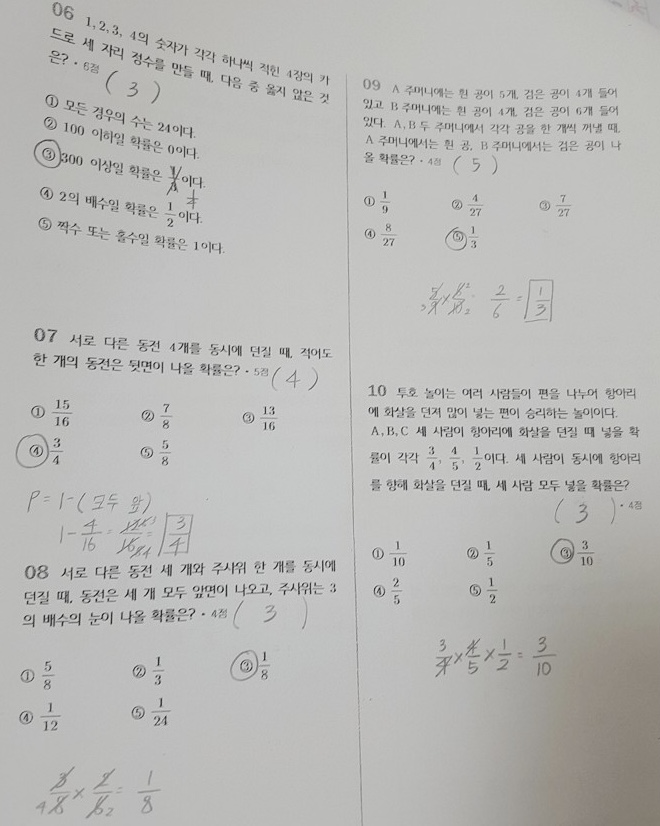 06 1, 2, 3, 4의 숫자가 각각 하나씩 적힌 4장의 카
드로 세 자리 정수를 만들 때, 다음 중 옳지 않은 것
은? • 6점 ( 3 )
① 모든 경우의 수는 24이다.
② 100 이하일 확률은 0이다.
③ 300 이상일 확률은 이다.
④ 2의 배수일 확률은 1/2이다.
⑤ 짝수 또는 홀수일 확률은 1이다.
07 서로 다른 동전 4개를 동시에 던질 때, 적어도
한 개의 동전은 뒷면이 나올 확률은? • 5점 ( 4 )
① 15/16 ② 7/8 ③ 13/16
④ 3/4 ⑤ 5/8
P = 1-(모두 앞)
1 - 4/16 = 12/16 = 3/4
08 서로 다른 동전 세 개와 주사위 한 개를 동시에
던질 때, 동전은 세 개 모두 앞면이 나오고, 주사위는 3
의 배수의 눈이 나올 확률은? • 4점 ( 3 )
① 5/8 ② 1/3 ③ 1/8
④ 1/12 ⑤ 1/24
3/8 × 2/6 = 1/8
09 A 주머니에는 흰 공이 5개, 검은 공이 4개 들어
있고 B 주머니에는 흰 공이 4개, 검은 공이 6개 들어
있다. A, B 두 주머니에서 각각 공을 한 개씩 꺼낼 때,
A 주머니에서는 흰 공, B 주머니에서는 검은 공이 나
올 확률은? • 4점 ( 5 )
① 1/9 ② 4/27 ③ 7/27
④ 8/27 ⑤ 1/3
5/9 × 6/10 = 2/6 = 1/3
10 투호 놀이는 여러 사람들이 편을 나누어 항아리
에 화살을 던져 많이 넣는 편이 승리하는 놀이이다.
A, B, C 세 사람이 항아리에 화살을 던질 때 넣을 확
률이 각각 3/4, 4/5, 1/2이다. 세 사람이 동시에 항아리
를 향해 화살을 던질 때, 세 사람 모두 넣을 확률은?
( 3 ) • 4점
① 1/10 ② 1/5 ③ 3/10
④ 2/5 ⑤ 1/2
3/4 × 4/5 × 1/2 = 3/10